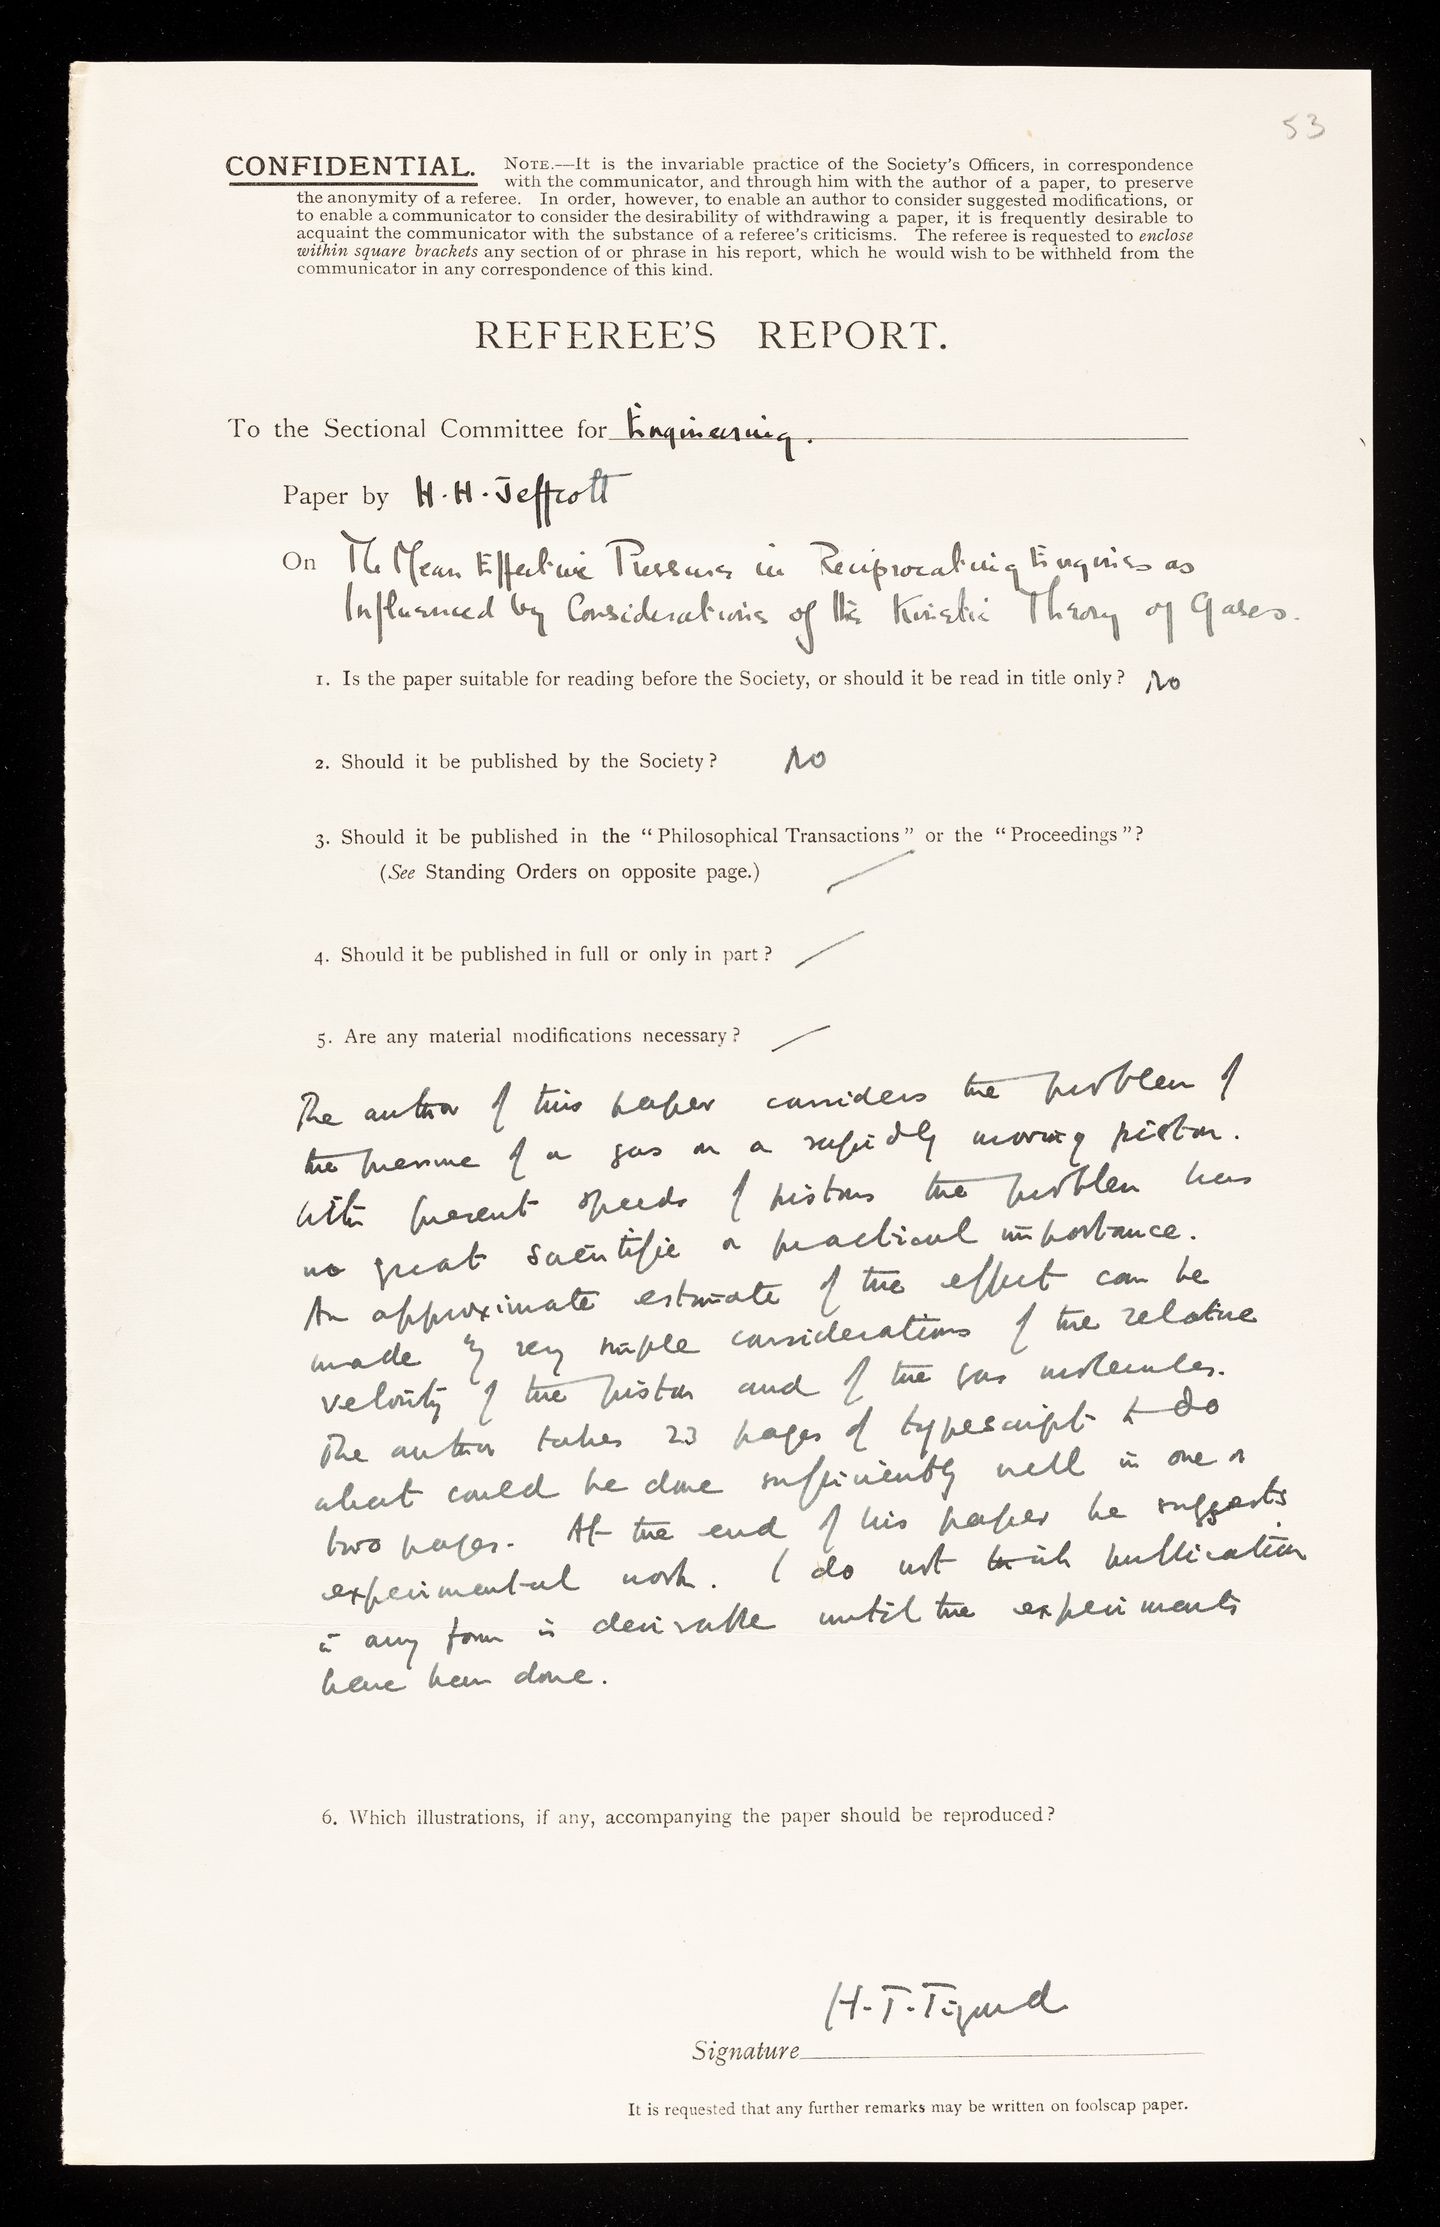 53
CONFIDENTIAL. NOTE.—It is the invariable practice of the Society's Officers, in correspondence
with the communicator, and through him with the author of a paper, to preserve
the anonymity of a referee. In order, however, to enable an author to consider suggested modifications, or
to enable a communicator to consider the desirability of withdrawing a paper, it is frequently desirable to
acquaint the communicator with the substance of a referee's criticisms. The referee is requested to enclose
within square brackets any section of or phrase in his report, which he would wish to be withheld from the
communicator in any correspondence of this kind.
REFEREE'S REPORT.
To the Sectional Committee for Engineering.
Paper by H. H. Jeffcott
On The Mean Effective Pressures in Reciprocating Engines as
Influenced by Considerations of the Kinetic Theory of Gases.
1. Is the paper suitable for reading before the Society, or should it be read in title only? No
2. Should it be published by the Society? No
3. Should it be published in the "Philosophical Transactions" or the "Proceedings"?
(See Standing Orders on opposite page.) /
4. Should it be published in full or only in part? /
5. Are any material modifications necessary? /
The author of this paper considers the problem of
the pressure of a gas on a rapidly moving piston.
With present speeds of pistons the problem has
no great scientific or practical importance.
An approximate estimate of the effect can be
made by very simple considerations of the relative
velocity of the piston and of the gas molecules.
The author takes 23 pages of typescript to do
what could be done sufficiently well in one or
two pages. At the end of his paper he suggests
experimental work. I do not think publication
in any form is desirable until the experiments
have been done.
6. Which illustrations, if any, accompanying the paper should be reproduced?
H. T. Tizard
Signature
It is requested that any further remarks may be written on foolscap paper.